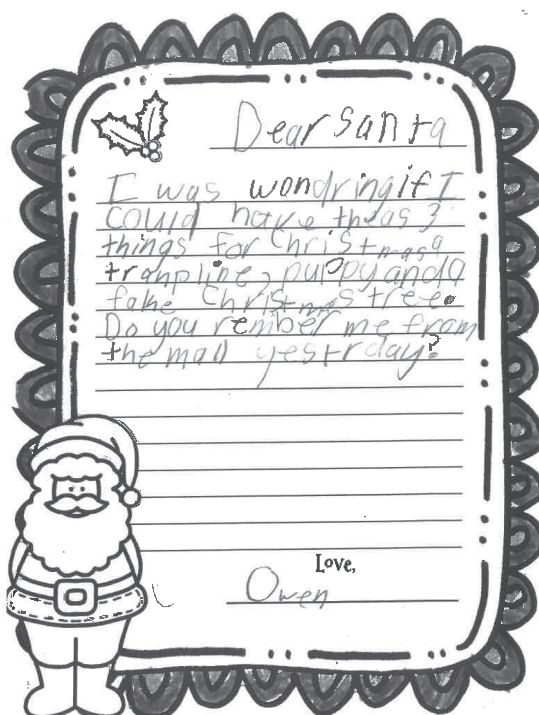 Dear Santa
I was wondring if I
could have theas 3
things for Christmas a
trampline, puppy and a
fake Christmas tree.
Do you rember me from
the mall yestrday?
Love,
Owen